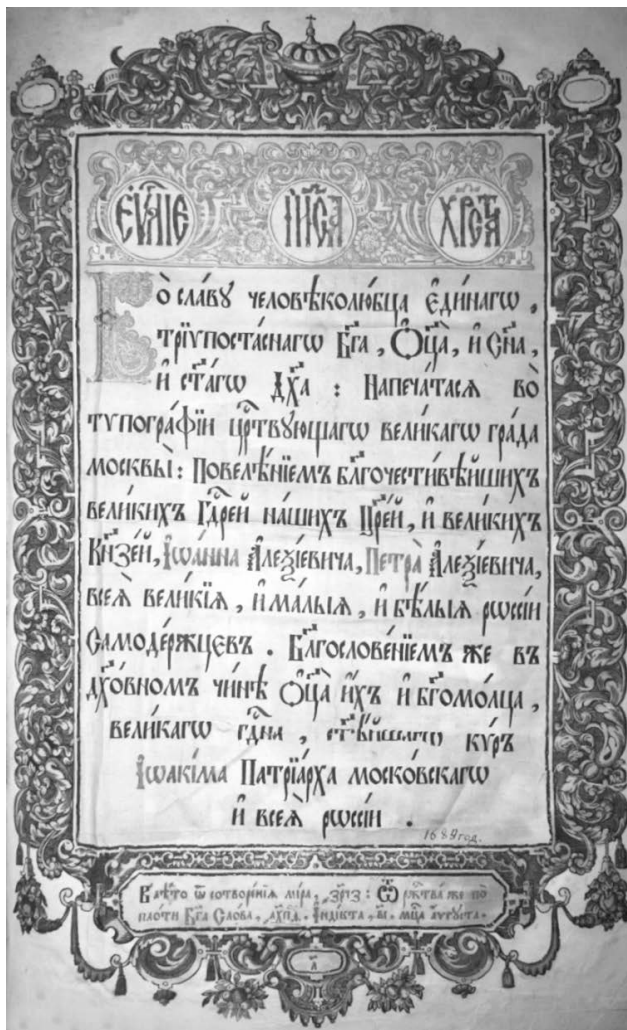 ЕѴⷢ҇ЛІЕ І҆И҃СА ХРⷭ҇ТА
Во̀ сла́вꙋ человѣколю́бца є҆ди́нагѡ,
трїѵпоста́снагѡ Бг҃а, Ѻ҆ц҃а̀, и҆ Сн҃а,
и҆ ст҃а́гѡ Дх҃а : Напеча́тасѧ во̀
тѵпогра́фїи црⷭ҇твꙋ́ющагѡ вели́кагѡ гра́да
москвы̀: Повелѣ́нїемъ блг҃очести́вѣйшихъ
вели́кихъ Гдⷭ҇рей на́шихъ Цр҃е́й, и҆ вели́кихъ
Кн҃зе́й, І҆ѡа́нна А҆леѯі́евича, Петра̀ А҆леѯі́евича,
всеѧ̀ вели́кїѧ, и҆ ма́лыѧ, и҆ бѣ́лыѧ рѡссі́и
Самоде́ржцєвъ . Блг҃ослове́нїемъ же въ
дх҃о́вномъ чи́нѣ Ѻ҆ц҃а̀ и҆́хъ и҆ бг҃омо́лца,
вели́кагѡ гдⷭ҇на , ст҃ѣ́йшагѡ кѵ́ръ
І҆ѡаки́ма Патрїа́рха моско́вскагѡ
и҆ всеѧ̀ рѡссі́и .
1689 год.
В лѣ́то ѿ сотворе́нїѧ мі́ра , ҂зр҃ч҃з : Ѿ ржⷭ҇тва́ же по
пло́ти Бг҃а Сло́ва , ҂ахп҃ѳ . І҆нді́кта , в҃і . мцⷭ҇а а҆́ѵгꙋста .